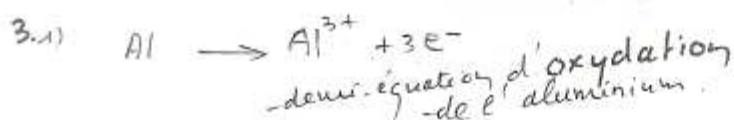 3.1) Al → Al³⁺ + 3e⁻
-demi-équation d'oxydation
-de l'aluminium.